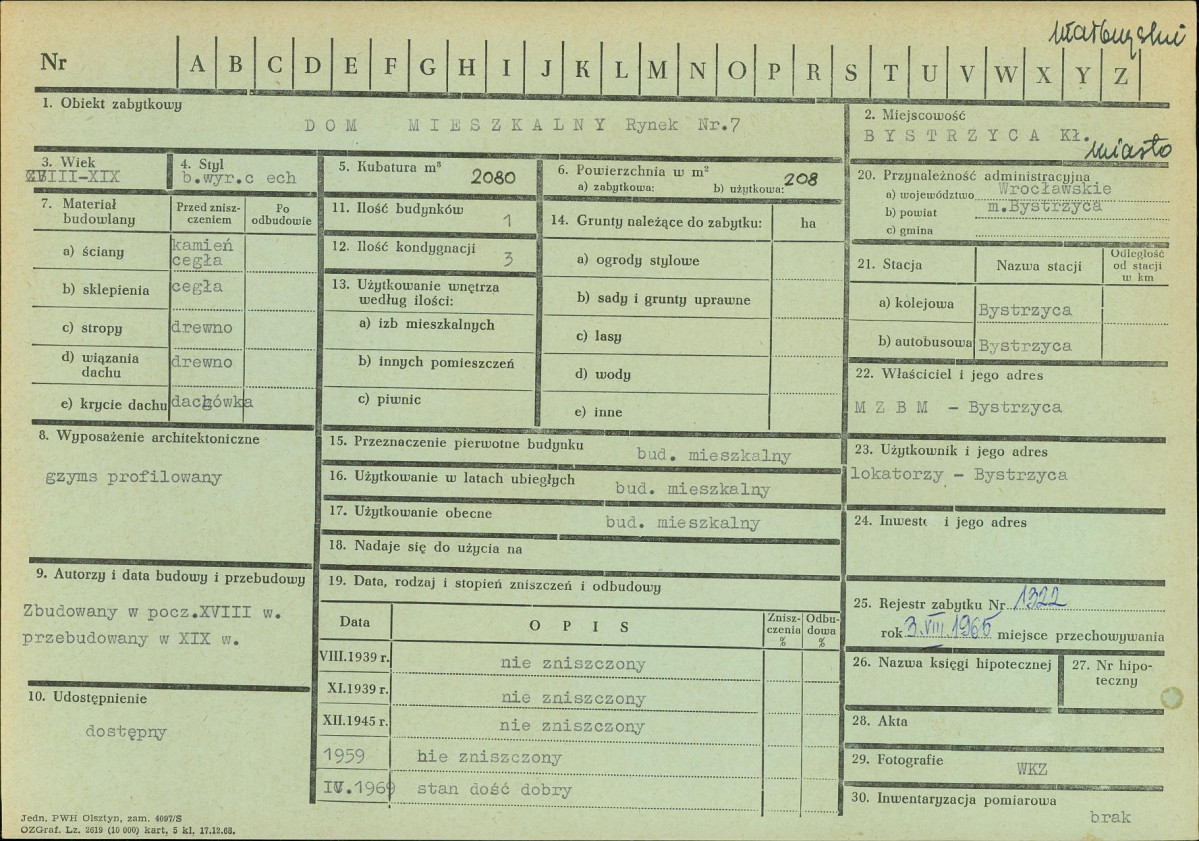 wałbrzyski
Nr A B C D E F G H I J K L M N O P R S T U V W X Y Z
1. Obiekt zabytkowy
DOM MIESZKALNY Rynek Nr.7
2. Miejscowość
BYSTRZYCA Kł.
miasto
3. Wiek
XVIII-XIX
4. Styl
b.wyr.c ech
5. Kubatura m³ 2080
6. Powierzchnia w m²
a) zabytkowa: b) użytkowa: 208
7. Materiał budowlany
Przed zniszczeniem
Po odbudowie
a) ściany kamień cegła
b) sklepienia cegła
c) stropy drewno
d) wiązania dachu drewno
e) krycie dachu dachówka
8. Wyposażenie architektoniczne
gzyms profilowany
9. Autorzy i data budowy i przebudowy
Zbudowany w pocz.XVIII w.
przebudowany w XIX w.
10. Udostępnienie
dostępny
11. Ilość budynków 1
12. Ilość kondygnacji 3
13. Użytkowanie wnętrza
według ilości:
a) izb mieszkalnych
b) innych pomieszczeń
c) piwnic
14. Grunty należące do zabytku: ha
a) ogrody stylowe
b) sady i grunty uprawne
c) lasy
d) wody
e) inne
15. Przeznaczenie pierwotne budynku bud. mieszkalny
16. Użytkowanie w latach ubiegłych bud. mieszkalny
17. Użytkowanie obecne bud. mieszkalny
18. Nadaje się do użycia na
19. Data, rodzaj i stopień zniszczeń i odbudowy
Data OPIS Zniszczenia % Odbudowa %
VIII.1939 r. nie zniszczony
XI.1939 r. nie zniszczony
XII.1945 r. nie zniszczony
1959 nie zniszczony
IV.1969 stan dość dobry
20. Przynależność administracyjna
a) województwo Wrocławskie
b) powiat m.Bystrzyca
c) gmina
21. Stacja Nazwa stacji Odległość od stacji w km
a) kolejowa Bystrzyca
b) autobusowa Bystrzyca
22. Właściciel i jego adres
M Z B M - Bystrzyca
23. Użytkownik i jego adres
lokatorzy - Bystrzyca
24. Inwest i jego adres
25. Rejestr zabytku Nr 1322
rok 3.VIII.1965 miejsce przechowywania
26. Nazwa księgi hipotecznej
27. Nr hipoteczny
28. Akta
29. Fotografie WKZ
30. Inwentaryzacja pomiarowa
brak
Jedn. PWH Olsztyn, zam. 4097/S
OZGraf. Lz. 2619 (10 000) kart, 5 kl, 17.12.68.